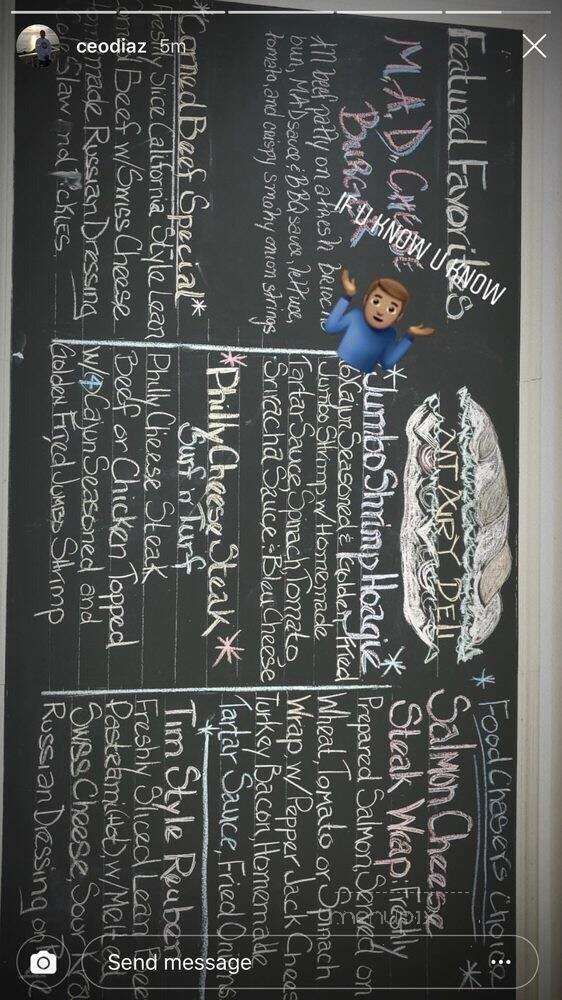 ceodiaz 5m
IF U KNOW U KNOW
Featured Favorites
M.A.D.
Burger
All beef patty on a fresh
bun, MAD sauce & BBQ sauce, lettuce,
tomato, and crispy smoky onion strings
*Corned Beef Special*
Freshly Slice California Style Lean
Corned Beef w/Swiss Cheese
Homemade Russian Dressing
Slaw and Pickles.
MT AIRY DELI
*Jumbo Shrimp Hoagie*
Cajun Seasoned & Golden Fried
Jumbo Shrimp w/Homemade
Tartar Sauce Spinach Tomato
Sriracha Sauce & Bleu Cheese
*Philly Cheese Steak*
Surf n Turf
Philly Cheese Steak
Beef or Chicken Topped
w/4 Cajun Seasoned and
Golden Fryed Jumbo Shrimp
*Food Chasers Choice*
Salmon Cheese
Steak Wrap Freshly
Prepared Salmon, Served on
Wheat, Tomato or Spinach
Wrap w/Pepper Jack Chees
Turkey Bacon, Homemade
Tartar Sauce, Fried Onions
*Tim Style Reuben
Freshly Sliced Lean
Pastrami (Hot) w/Melt
Swiss Cheese Sour
Russian Dressing on
menupix
Send message